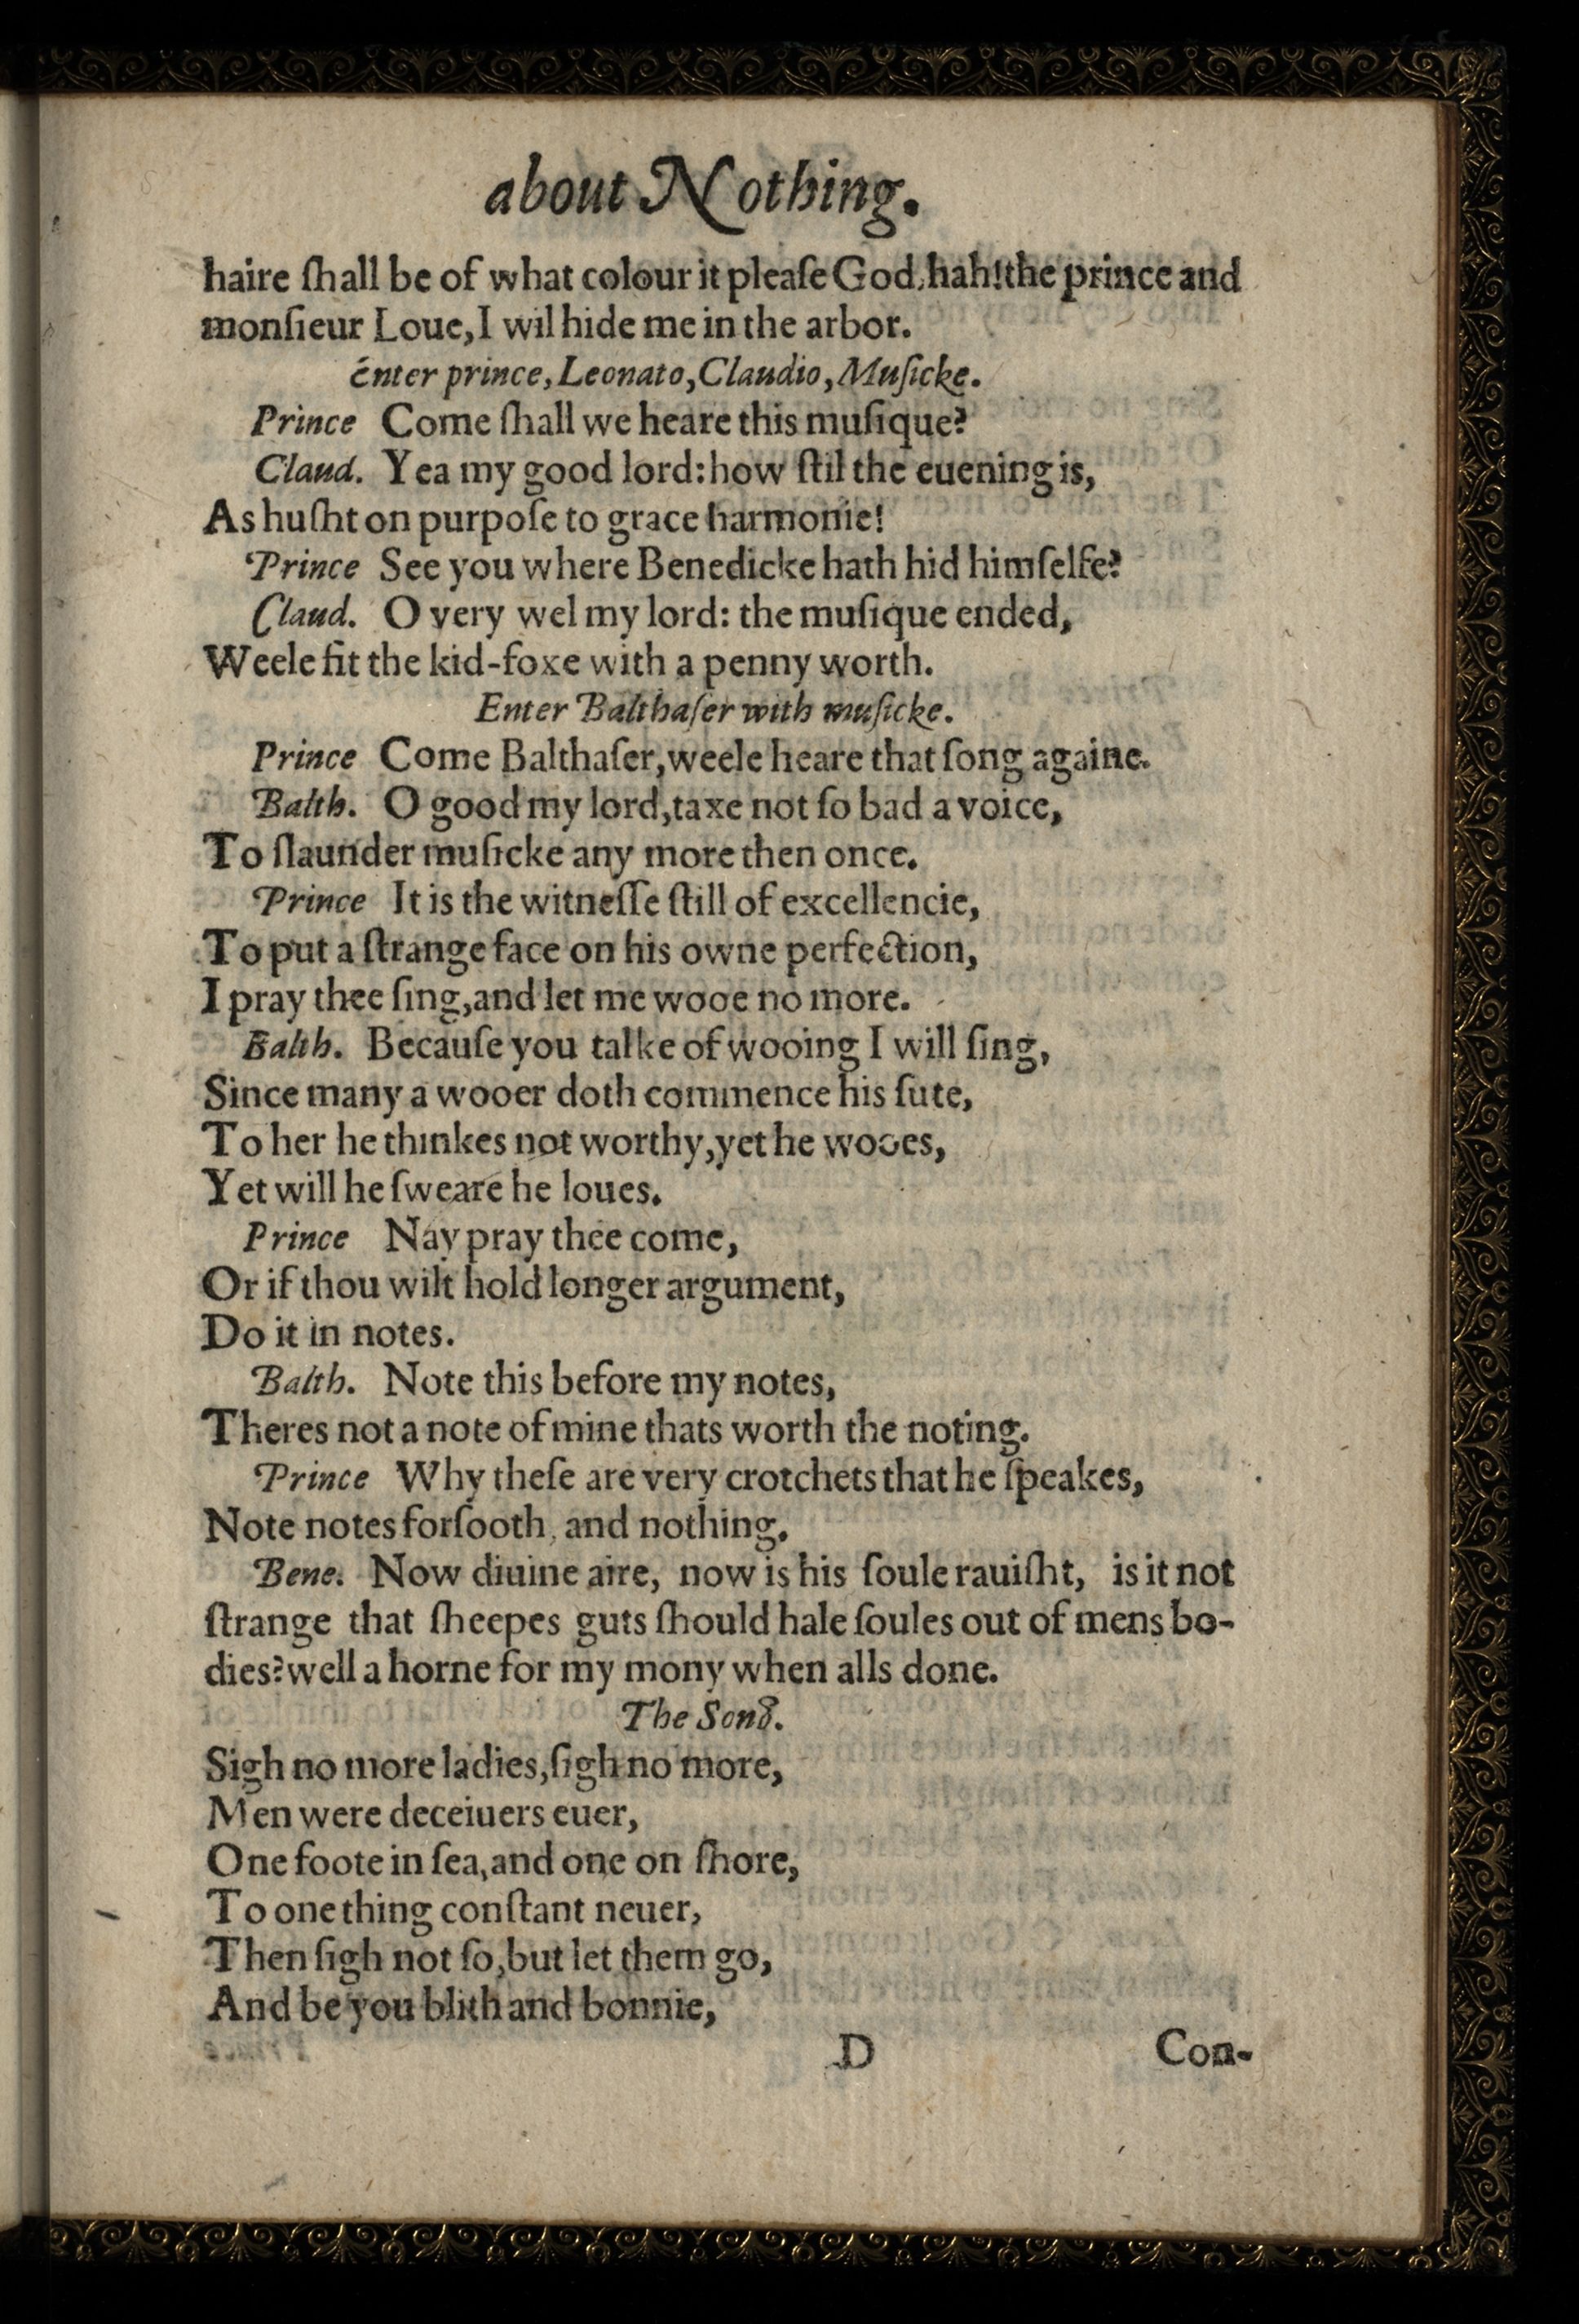 about Nothing.
haire ſhall be of what colour it pleaſe God, hah! the prince and
monſieur Loue, I wil hide me in the arbor.
Enter prince, Leonato, Claudio, Muſicke.
Prince Come ſhall we heare this muſique?
Claud. Yea my good lord: how ſtil the euening is,
As huſht on purpoſe to grace harmonie!
Prince See you where Benedicke hath hid himſelfe?
Claud. O very wel my lord: the muſique ended,
Weele fit the kid-foxe with a penny worth.
Enter Balthaſer with muſicke.
Prince Come Balthaſer, weele heare that ſong againe.
Balth. O good my lord, taxe not ſo bad a voice,
To ſlaunder muſicke any more then once.
Prince It is the witneſſe ſtill of excellencie,
To put a ſtrange face on his owne perfection,
I pray thee ſing, and let me wooe no more.
Balth. Becauſe you talke of wooing I will ſing,
Since many a wooer doth commence his ſute,
To her he thinkes not worthy, yet he wooes,
Yet will he ſweare he loues.
Prince Nay pray thee come,
Or if thou wilt hold longer argument,
Do it in notes.
Balth. Note this before my notes,
Theres not a note of mine thats worth the noting.
Prince Why theſe are very crotchets that he ſpeakes,
Note notes forſooth, and nothing.
Bene. Now diuine aire, now is his ſoule rauiſht, is it not
ſtrange that ſheepes guts ſhould hale ſoules out of mens bo-
dies? well a horne for my mony when alls done.
The Song.
Sigh no more ladies, ſigh no more,
Men were deceiuers euer,
One foote in ſea, and one on ſhore,
To one thing conſtant neuer,
Then ſigh not ſo, but let them go,
And be you blith and bonnie,
D Con-